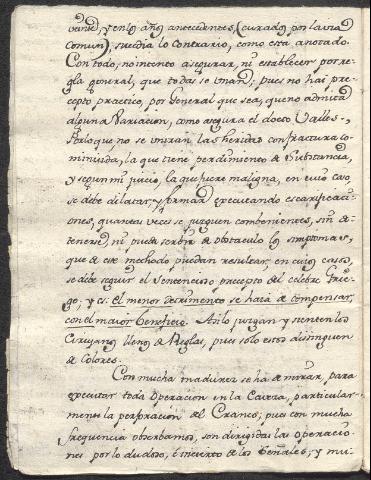 vened, y en los años antecedentes, (curados por la via
comun) sucedia lo contrario, como esta anotado.
Con todo, no intento asegurar, ni establecer por re-
gla general, que todas se unan; pues no hai pre-
cepto practico, por General que sea, que no admita
alguna Variacion, como asegura el docto Valles.,
Por lo que no se uniran las heridas con fractura co-
minuida, la que tiene perdimiento de substancia,
y segun mi juicio, la que fuere maligna, en cuio caso
se debe dilatar, y formar, executando escarificaci-
ones, quantas veces se juzguen combenientes, sin de-
tenerse, ni pueda servir de obstaculo los simptomas,
que de este methodo puedan resultar, en cuios casos,
se debe seguir el Sentencioso precepto del celebre Grie-
go, y es: el menor detrimento se hara de compensar,
con el maior beneficio. Asi lo juzgan y sienten los
Cirujanos llenos de Reglas, pues solo estos distinguen
de colores.
Con mucha madurez se ha de mirar, para
executar toda Operacion en la Caveza, particular-
mente la perforacion del Craneo; pues con mucha
frequencia observamos, son dirigidas las operacio-
nes por lo dudoso, é incierto de los Señales; y mu-